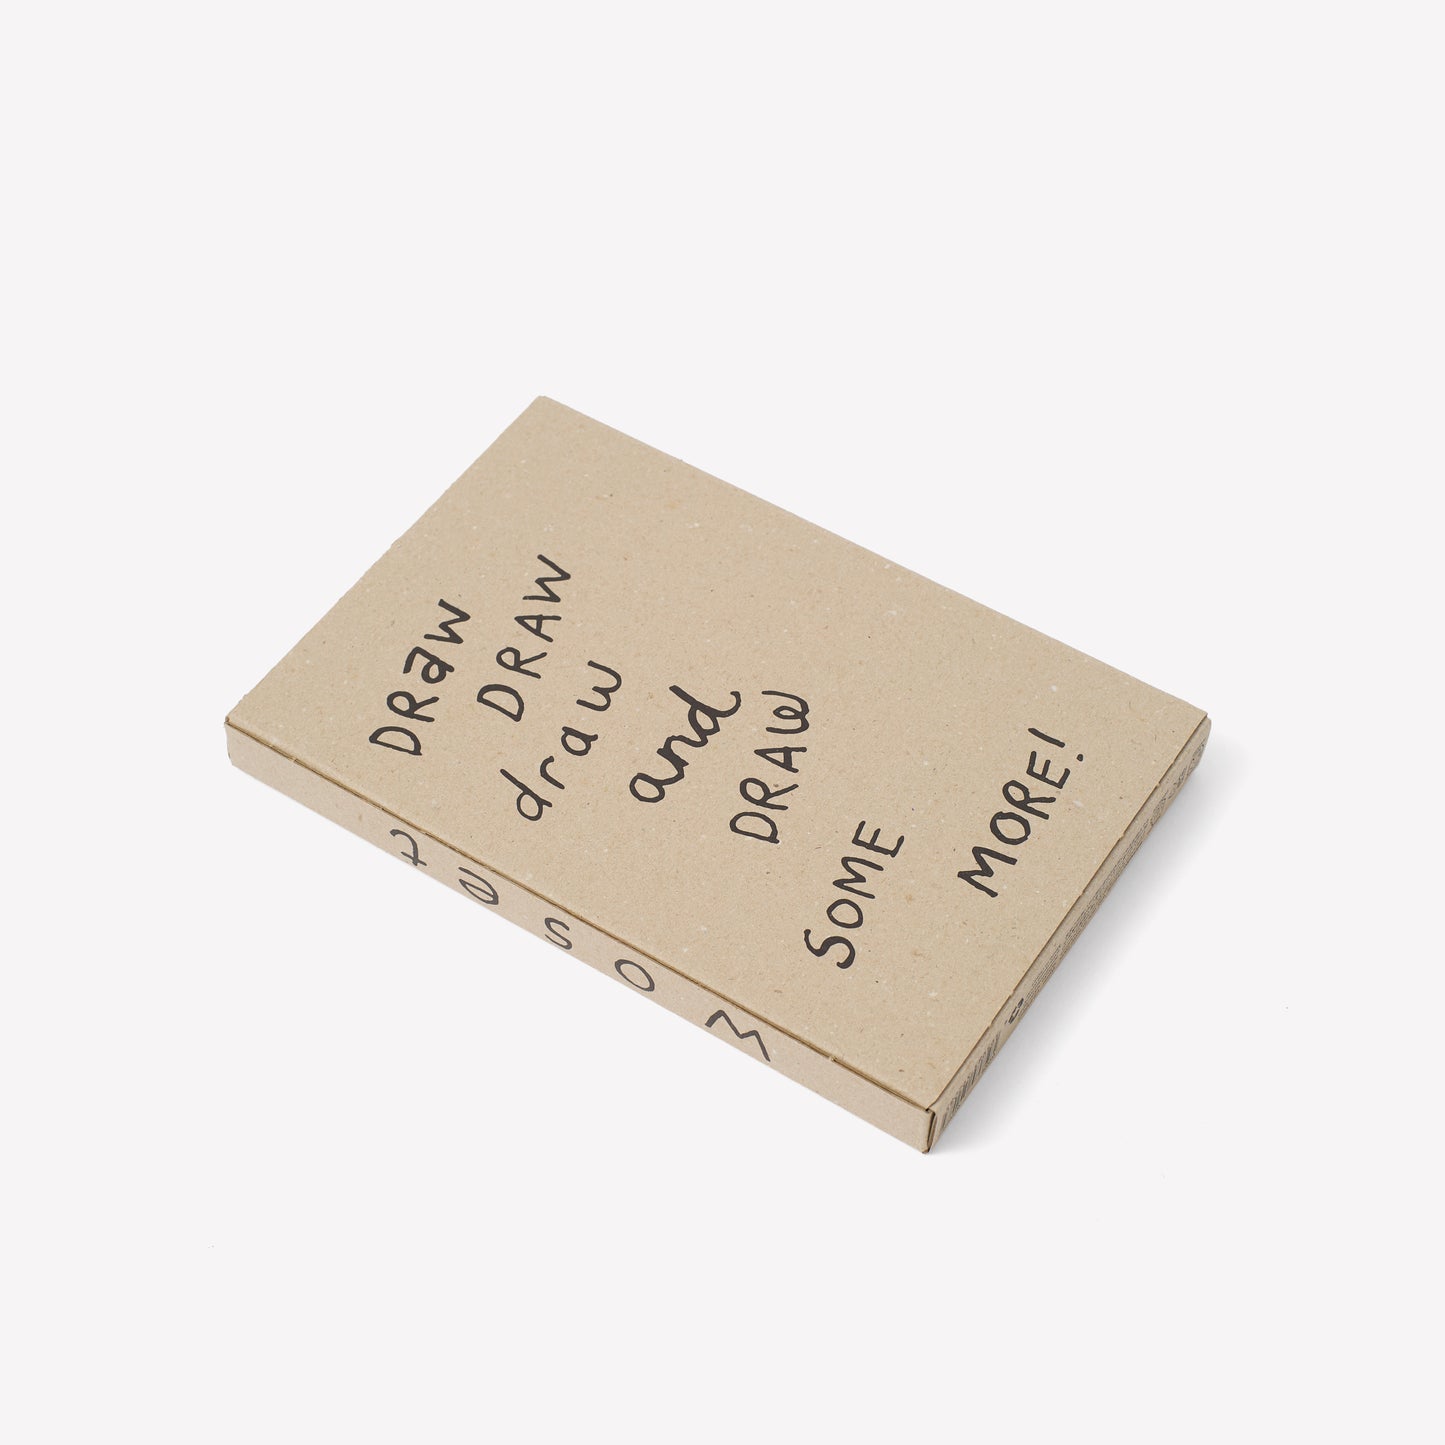 DRaW
DRAW
draw
and
DRAW
SOME
MORE!